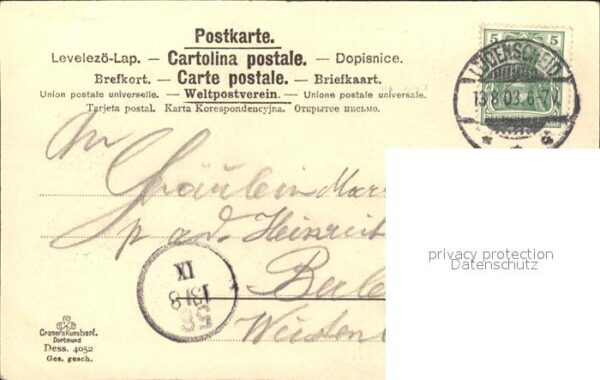 Postkarte.
Levelezö-Lap. — Cartolina postale. — Dopisnice.
Brefkort. — Carte postale. — Briefkaart.
Union postale universelle. — Weltpostverein. — Unione postale universale.
Tarjeta postal. Karta Korespondencyjna. Открытое письмо.
5 5
LÜDENSCHEID
13.8.03.6-7N
* * a
An
Fräulein
p. adr. Heinrich
privacy protection
Datenschutz
IX
13 8
58
Cramers Kunstverl.
Dortmund
Dess. 4052
Ges. gesch.